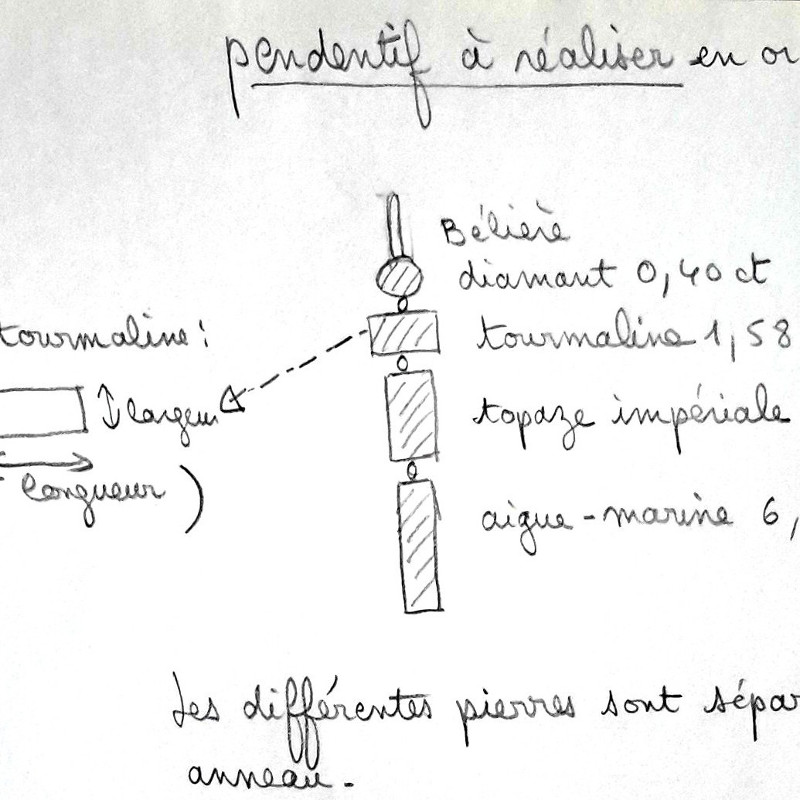 pendentif à réaliser en or
Bélière
diamant 0,40 ct
tourmaline :
tourmaline 1,58
largeur
topaze impériale
longueur )
aigue-marine 6,
Les différentes pierres sont sépar
anneau.